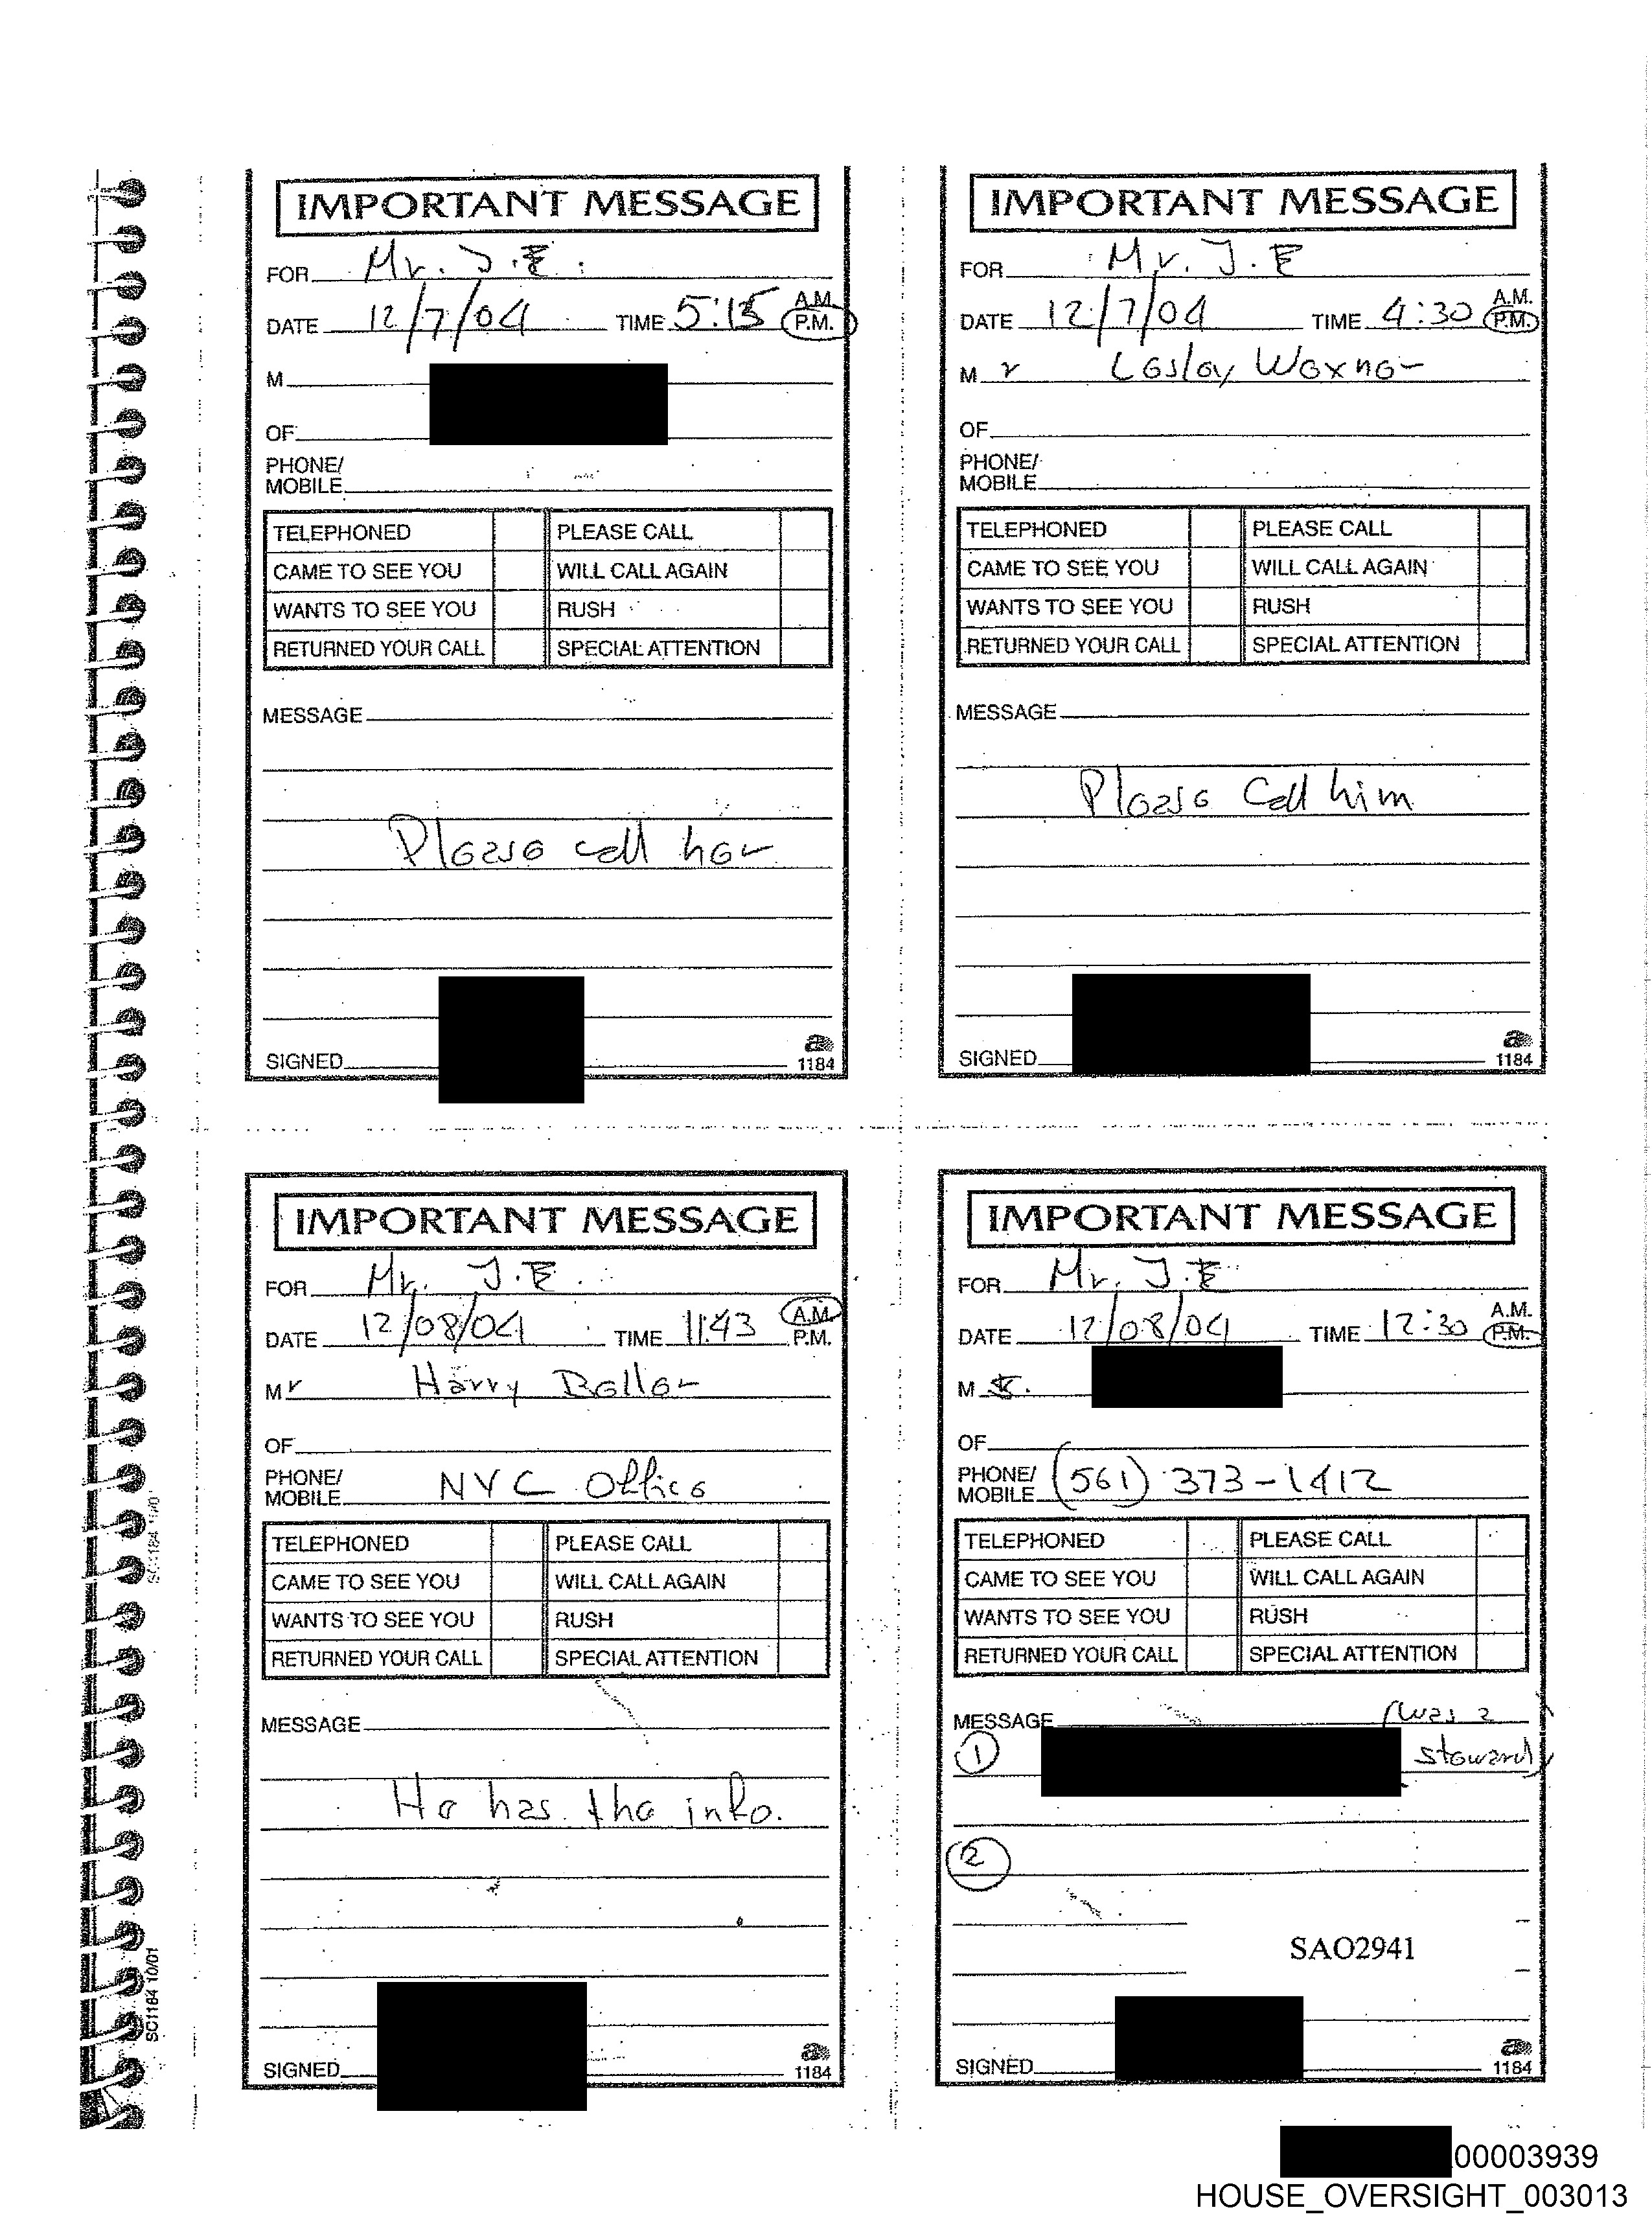 IMPORTANT MESSAGE
FOR Mr. J.E.
DATE 12/7/04 TIME 5:15 A.M.
P.M.
M
OF
PHONE/
MOBILE
TELEPHONED PLEASE CALL
CAME TO SEE YOU WILL CALL AGAIN
WANTS TO SEE YOU RUSH
RETURNED YOUR CALL SPECIAL ATTENTION
MESSAGE
Please call her
SIGNED
1184
IMPORTANT MESSAGE
FOR Mr. J.E
DATE 12/7/04 TIME 4:30 A.M.
P.M.
Mr Lesley Wexner
OF
PHONE/
MOBILE
TELEPHONED PLEASE CALL
CAME TO SEE YOU WILL CALL AGAIN
WANTS TO SEE YOU RUSH
RETURNED YOUR CALL SPECIAL ATTENTION
MESSAGE
Please Call him
SIGNED
1184
IMPORTANT MESSAGE
FOR Mr. J.E.
DATE 12/08/04 TIME 11:43 A.M.
P.M.
Mr Harry Beller
OF
PHONE/
MOBILE NYC Office
TELEPHONED PLEASE CALL
CAME TO SEE YOU WILL CALL AGAIN
WANTS TO SEE YOU RUSH
RETURNED YOUR CALL SPECIAL ATTENTION
MESSAGE
He has the info.
SIGNED
1184
IMPORTANT MESSAGE
FOR Mr. J.E
DATE 12/08/04 TIME 12:30 A.M.
P.M.
M
OF
PHONE/
MOBILE (561) 373-1412
TELEPHONED PLEASE CALL
CAME TO SEE YOU WILL CALL AGAIN
WANTS TO SEE YOU RUSH
RETURNED YOUR CALL SPECIAL ATTENTION
MESSAGE (was a
1 steward)
2
SAO2941
SIGNED
1184
SC1184 10/01
00003939
HOUSE_OVERSIGHT_003013